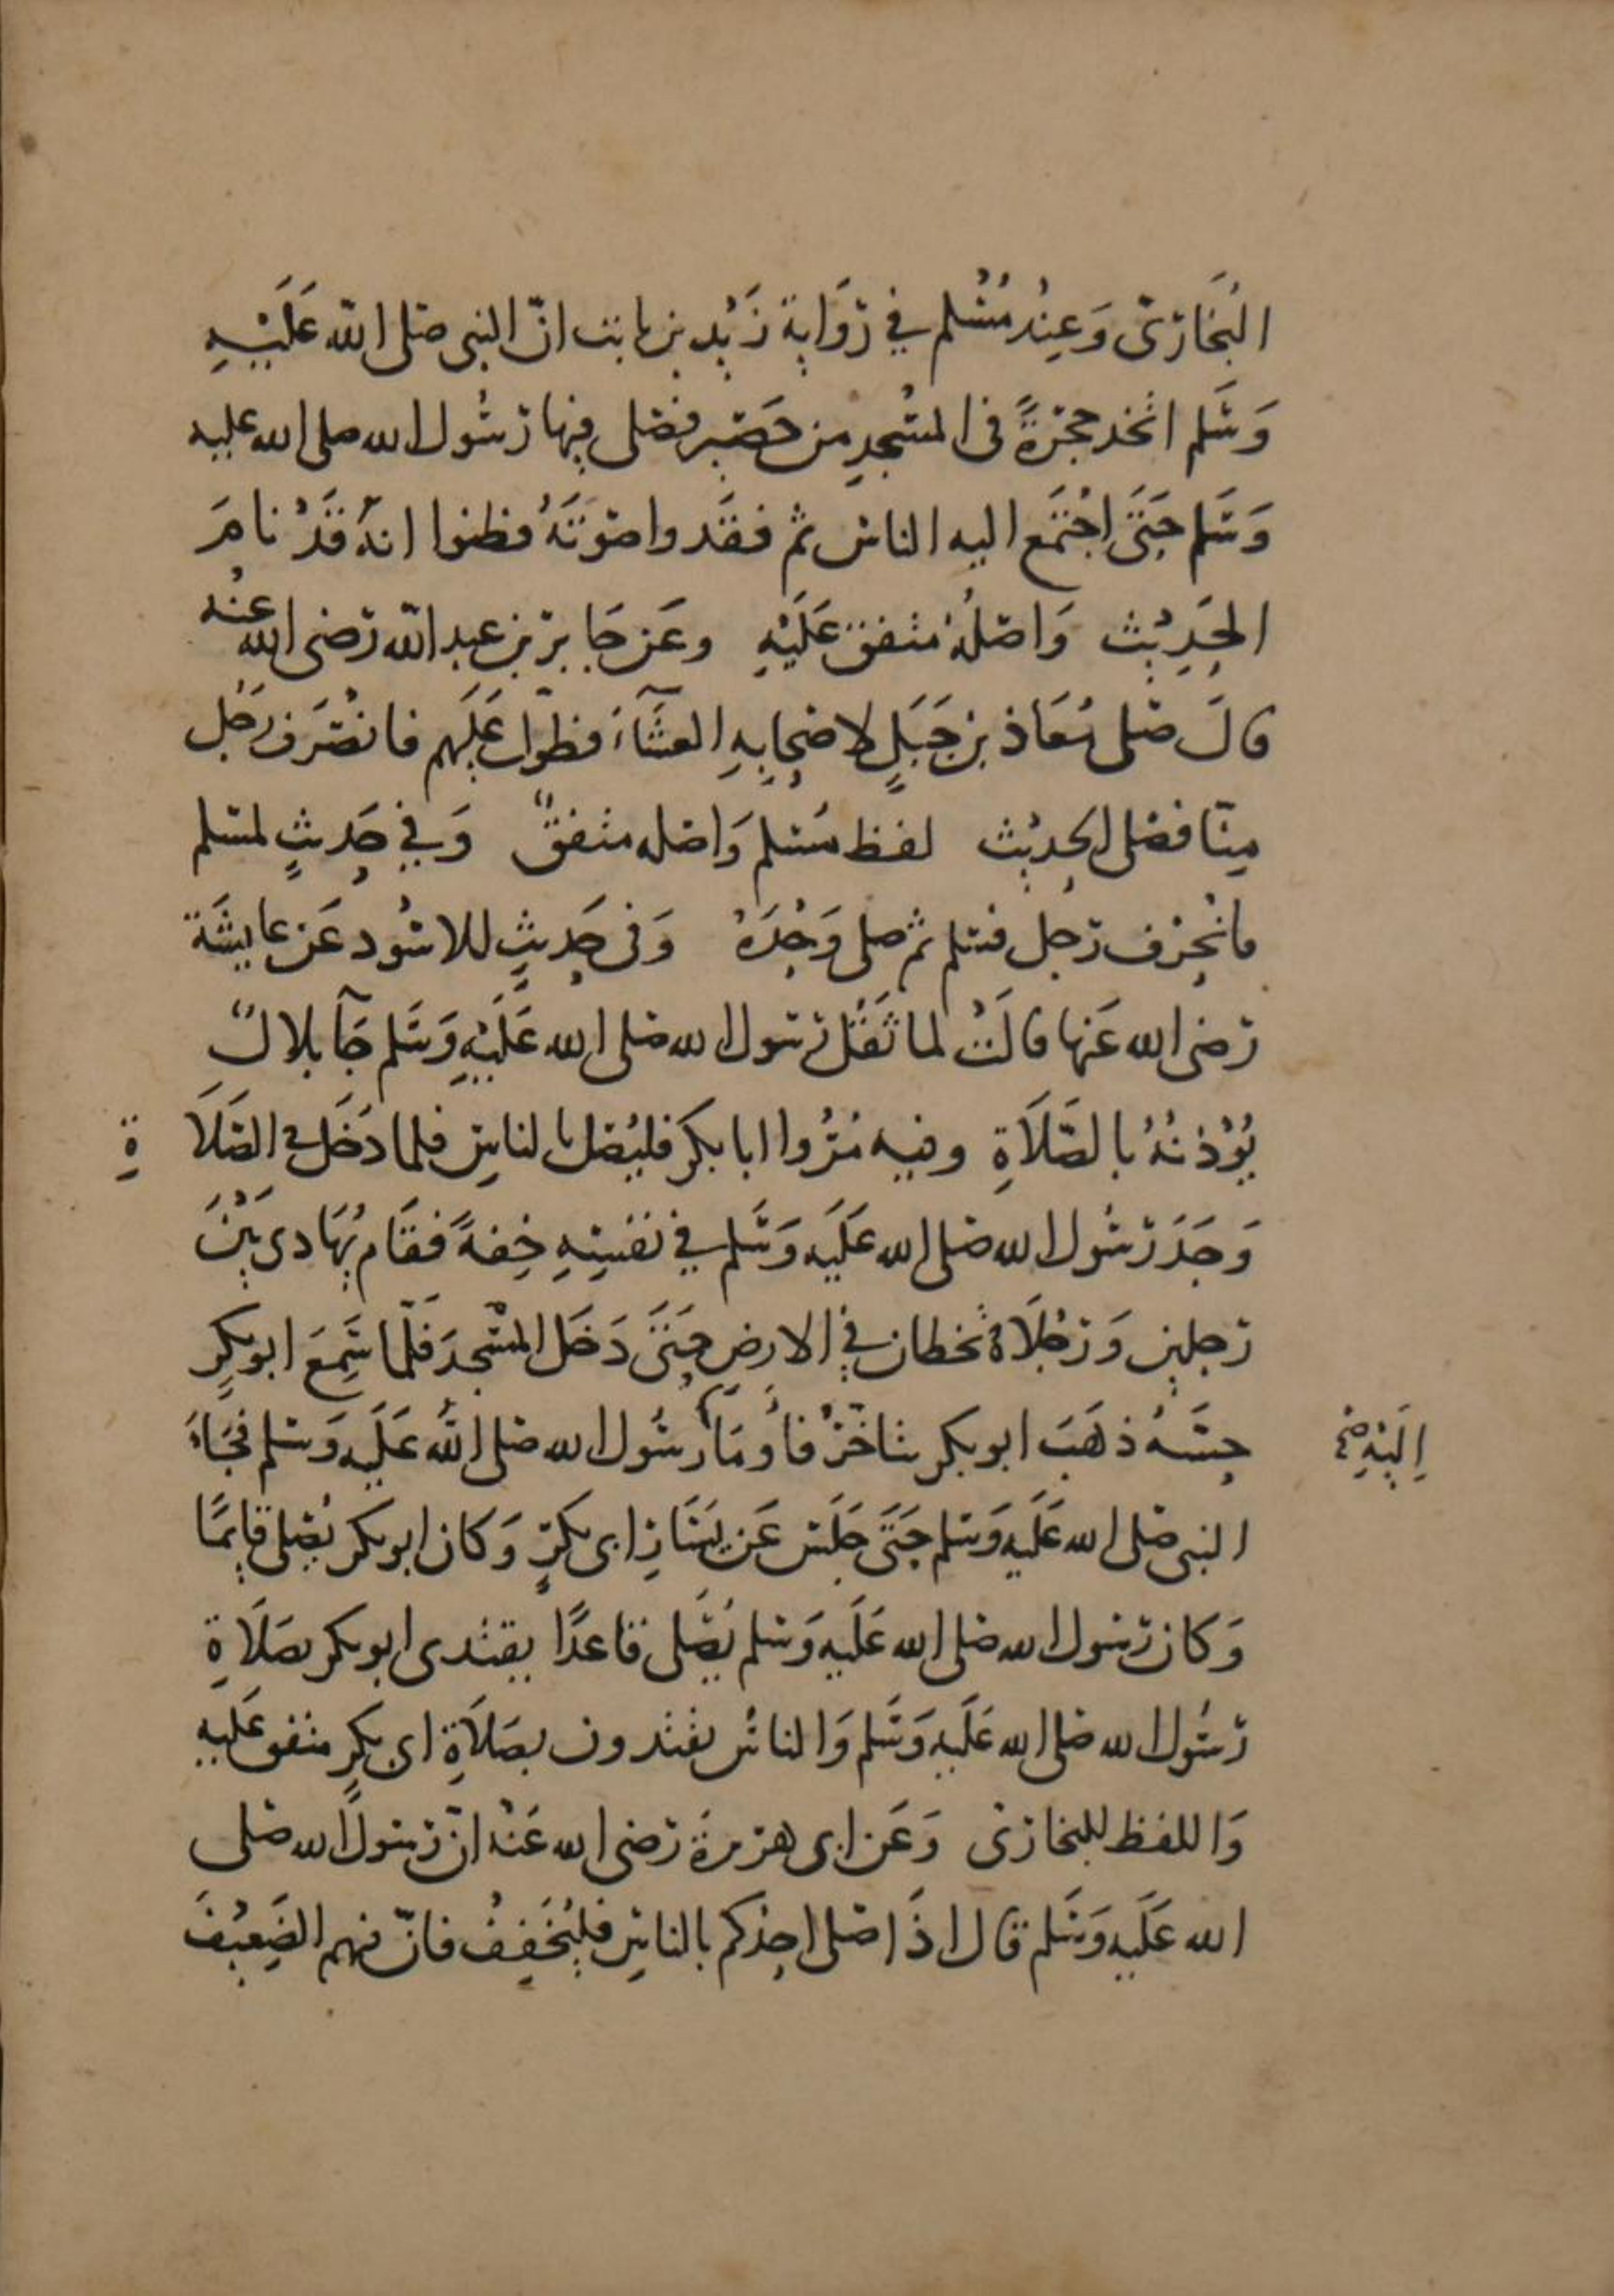 البُخَاريّ وَعِنْدُ مُسْلم في رِوَايةِ زَيْد بن ثابت انّ النبي صلى اللّه عَلَيْهِ
وَسَلم اتخذ حجرَةً في المسْجدِ من حَصَير فصَلى فيها رسُول الله صلى الله عليه
وَسَلم حَتَى اجْتَمَع اليه الناس ثم فقَدوا صَوتَهُ فظنوا انهُ قَدْ نامَ
الحَدِيْث وَاصْلُهُ متفق عَلَيْهِ وعَن جَابر بن عبد اللّه رَضي الله عنْه
قالَ صَلى مُعَاذ بن جَبَلٍ لاصحابِهِ العشَآءَ فطوّل عَلَيهم فانصَرَف رَجُل
مِنّا فصَلى الحديْث لفظ مُسْلم وَاصْله متفقٌ وَفي حَديثٍ لمسلم
فانْحرَف رَجل فسَلم ثم صلى وَحْدَهُ وَفي حَديثٍ للاسْود عَن عايشَة
رَضي الله عَنها قالَتْ لما ثَقُل رَسول الله صَلى الله عَلَيْهِ وَسَلم جَآ بلالٌ
يُوْذنُهُ بالصَّلاَةِ وفيه مُرُوا ابا بكر فليُصَل بالناسِ فلما دَخَل في الصَّلاَةِ
وَجَدَ رَسُول الله صَلى الله عَلَيَه وَسَلم في نفسِهِ خِفةً فقَام يُهَادى بَيْنَ
رَجلين وَرِجْلاَهُ تخطان في الارضِ حَتَى دَخَل المسْجدَ فَلَمّا سَمِعَ ابو بكرٍ
حِسَّهُ ذهَبَ ابو بكر يتاخّرُ فاُومَأ رسُول الله صَلى اللّه عَلَيه وَسلم فَجَاءَ
اِلَيْهِ صح
النبي صَلى الله عَلَيه وَسلم حَتَى جَلَس عَن يَسَارِ ابى بكرٍ وَكان ابو بكر يُصَلي قايمًا
وَكان رَسُول الله صَلى الله عَلَيه وَسلم يُصَلى قاعدًا يقتدى ابو بكر بصَلاَةِ
رَسُول الله صَلى الله عَلَيه وَسَلم وَالناسُ يقتدون بصَلاَةِ ابى بكرٍ متفق عَليه
وَاللفظ للبخارى وَعَن ابى هرَيرة رَضي الله عَنْهُ انّ رَسُولَ الله صَلى
الله عَلَيه وَسَلم قال اذَا صَلى احدكم بالناسِ فليُخَفِفْ فانّ فيهم الضَعِيْفَ